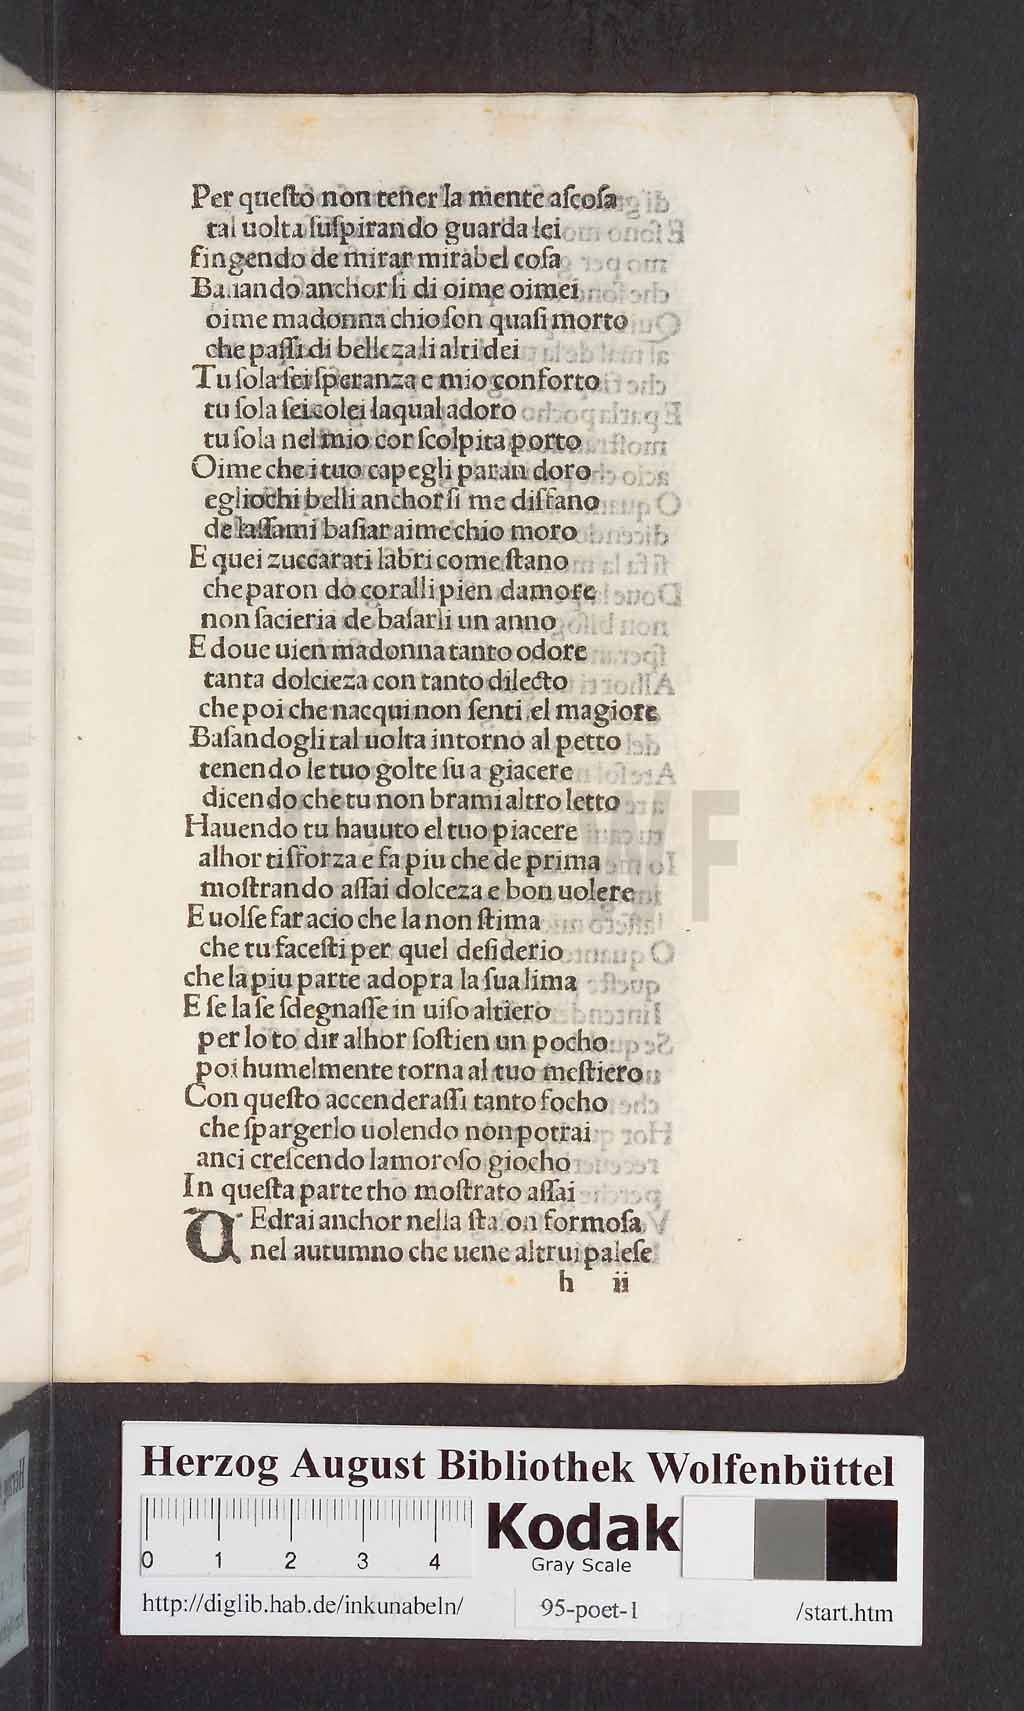 Per queſto non tener la mente aſcoſa
tal uolta ſuſpirando guarda lei
fingendo de mirar mirabel coſa
Baſiando anchor ſi di oime oimei
oime madonna chio ſon quaſi morto
che paſſi di belleza li altri dei
Tu ſola ſei ſperanza e mio conforto
tu ſola ſei colei laqual adoro
tu ſola nel mio cor ſcolpita porto
Oime che i tuo capegli paran doro
egliochi belli anchor ſi me disfano
de laſſami baſiar aime chio moro
E quei zuccarati labri come ſtano
che paron do coralli pien damore
non ſacieria de baſarli un anno
E doue uien madonna tanto odore
tanta dolcieza con tanto dilecto
che poi che nacqui non ſenti el magiore
Baſandogli tal uolta intorno al petto
tenendo le tuo golte ſu a giacere
dicendo che tu non brami altro letto
Hauendo tu hauuto el tuo piacere
alhor ti sforza e fa piu che de prima
moſtrando aſſai dolceza e bon uolere
E uolſe far acio che la non ſtima
che tu faceſti per quel deſiderio
che la piu parte adopra la ſua lima
E ſe la ſe ſdegnaſſe in uiſo altiero
per lo to dir alhor ſoſtien un pocho
poi humelmente torna al tuo meſtiero
Con queſto accenderaſſi tanto focho
che ſpargerlo uolendo non potrai
anci creſcendo lamoroſo giocho
In queſta parte tho moſtrato aſſai
UEdrai anchor nella ſtaion formoſa
nel autumno che uene altrui paleſe
h ii
HAB WF
Herzog August Bibliothek Wolfenbüttel
0 1 2 3 4
Kodak
Gray Scale
http://diglib.hab.de/inkunabeln/ 95-poet-1 /start.htm